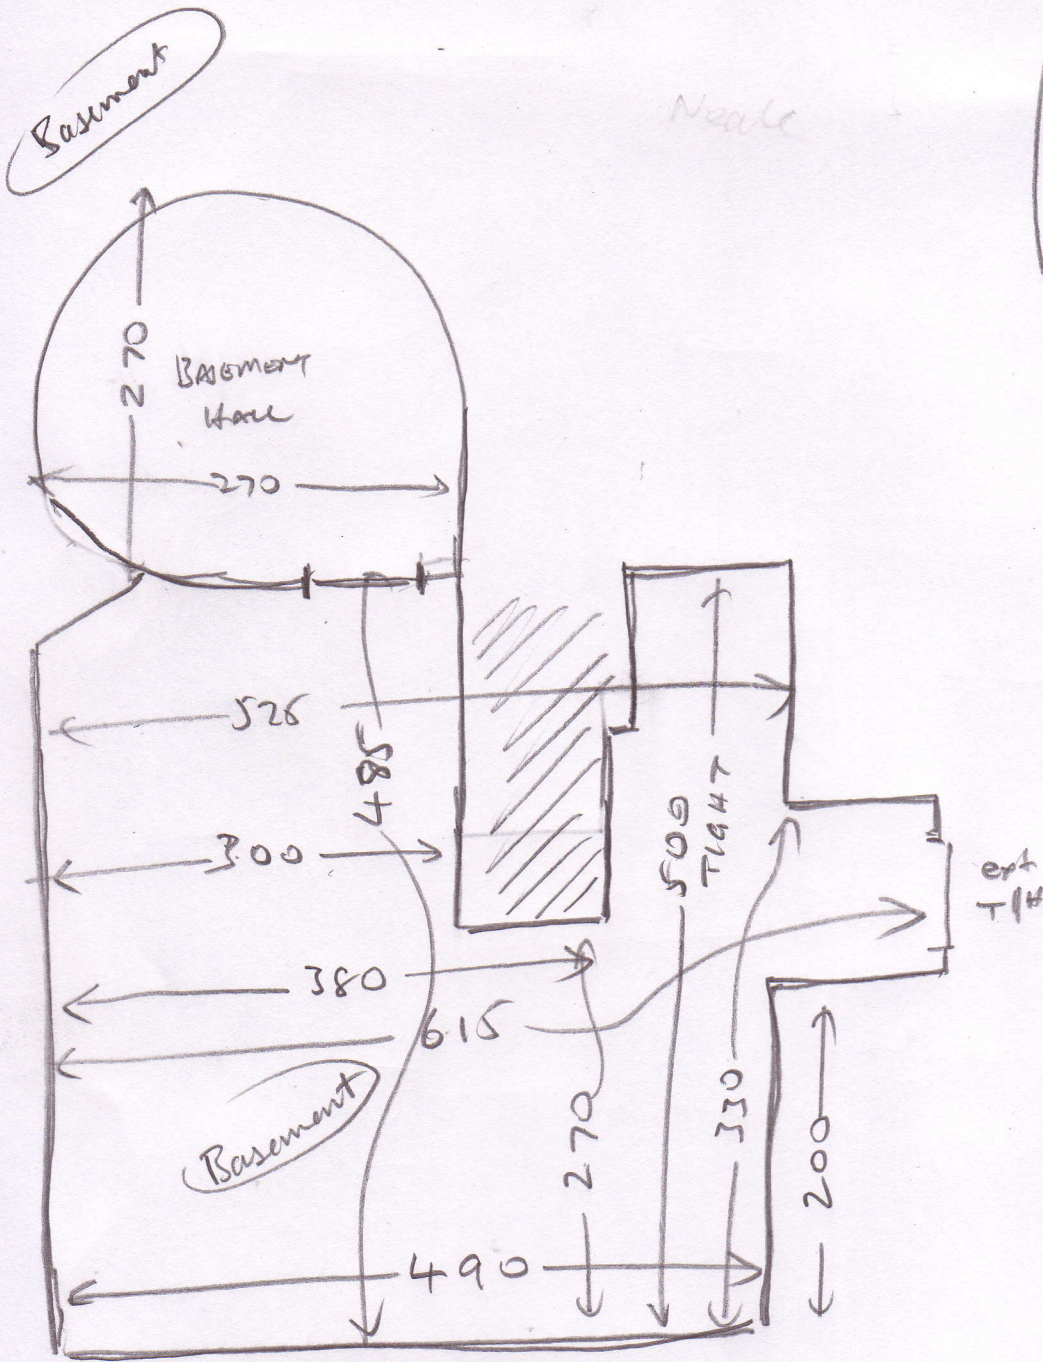 Basement
Neale
270
BASEMENT
HALL
270
526
485
300
500
TIGHT
ext
T/H
380
615
Basement
270
330
200
490